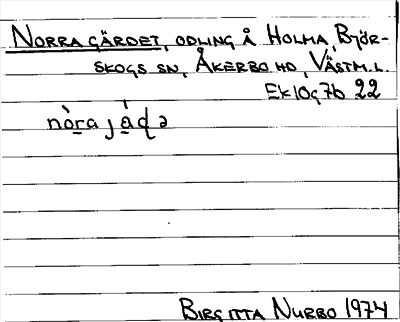 NORRA GÄRDET, ODLING Å HOLMA, BJÖR-
SKOGS SN, ÅKERBO HD, VÄSTM.L.
EK 10g7b 22
nò̱ra já̱ɖə
BIRGITTA NURBO 1974